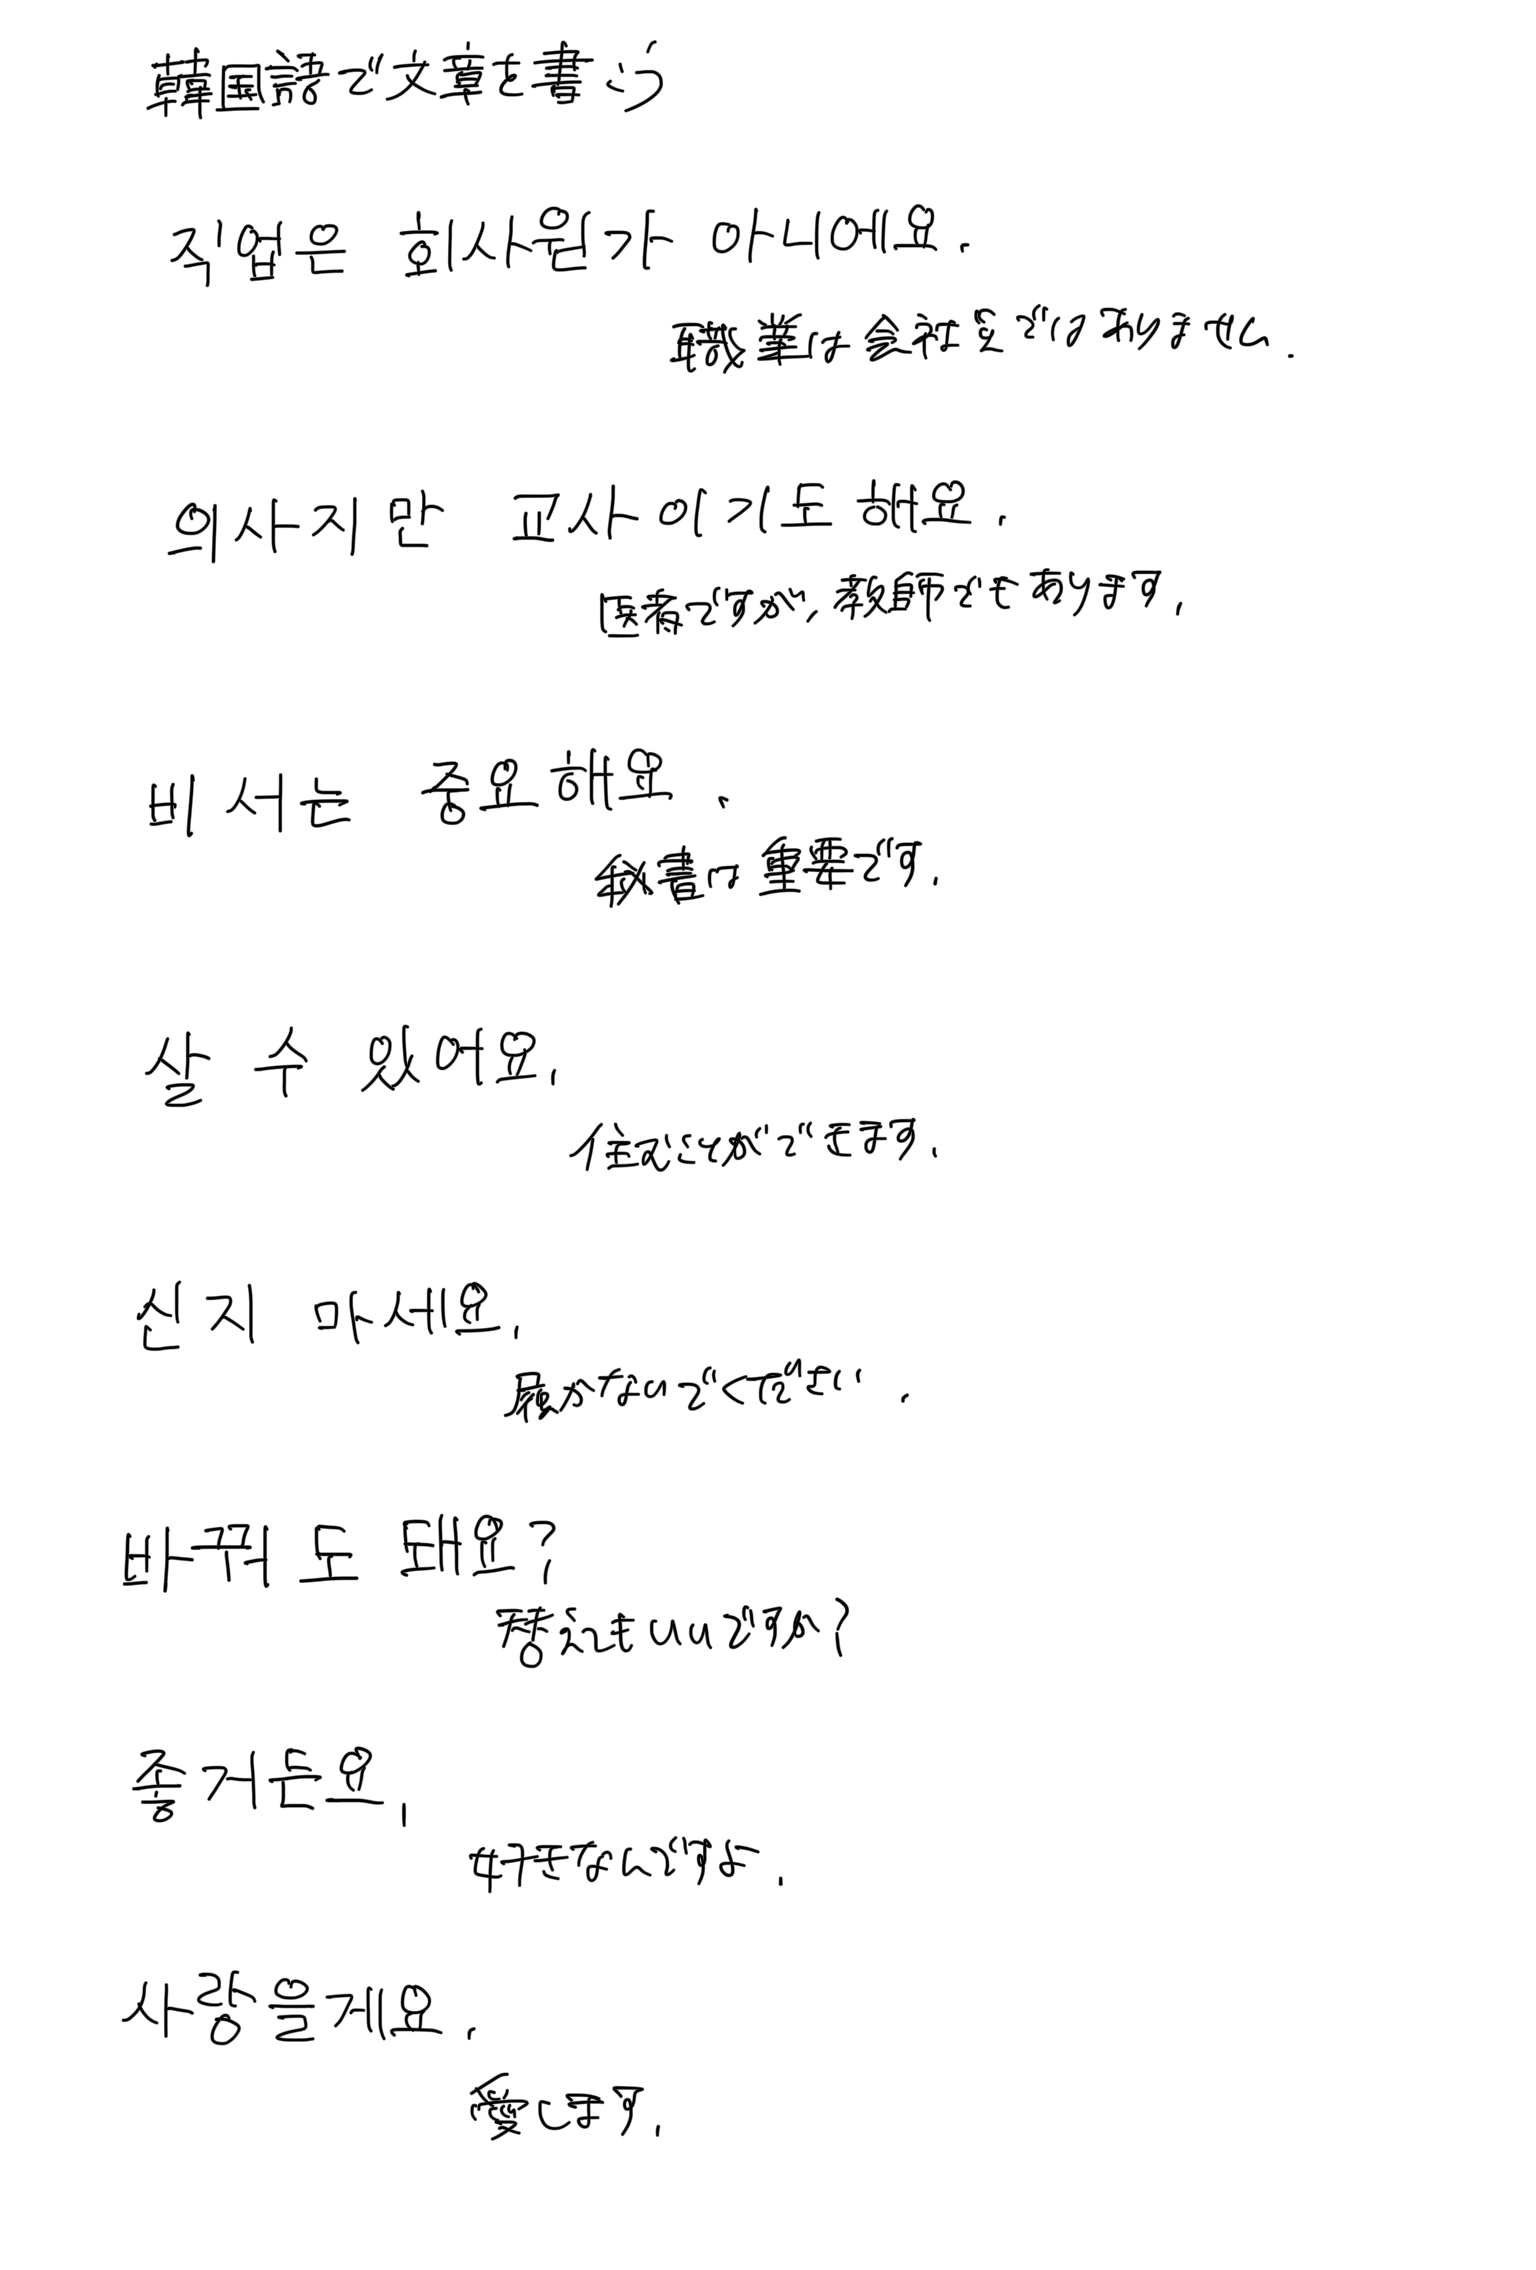 韓国語で文章を書こう
직업은 회사원가 아니에요.
職業は会社 ではありません.
의사지만 교사이기도 해요.
医者ですが, 教師でもあります.
비서는 중요해요.
秘書は重要です.
살 수 있어요.
住むことができます.
신지 마세요.
履かないでください.
바꿔도 돼요?
替えてもいいですか?
좋거든요.
好きなんですよ.
사랑을게요.
愛します.